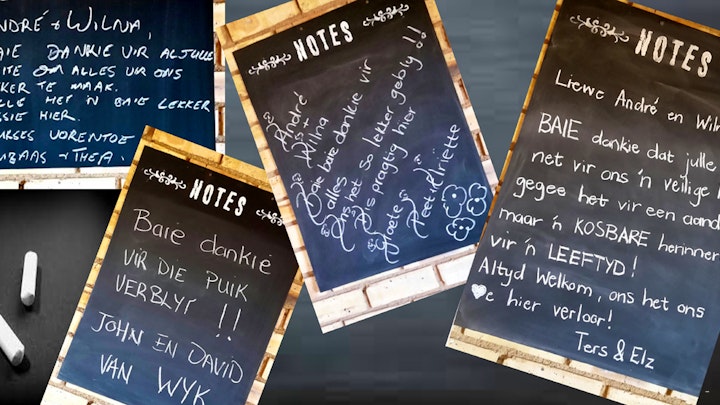 ANDRÉ + WILNA,
BAIE DANKIE VIR AL JULLE
OM ALLES VIR ONS
TE MAAK.
HET 'N BAIE LEKKER
HIER.
VORENTOE
+ THEA.
NOTES
Baie dankie
VIR DIE PUIK
VERBLYF !!
JOHN EN DAVID
VAN WYK
NOTES
André
Wilna
Baie baie dankie vir
alles
Ons het so lekker gebly !!
Dis pragtig hier
Groete
NOTES
Liewe André en Wil
BAIE dankie dat julle
net vir ons 'n veilige
gegee het vir een aand
maar 'n KOSBARE herinner
vir 'n LEEFTYD!
Altyd Welkom, ons het ons
♥e hier verloor!
Ters & Elz